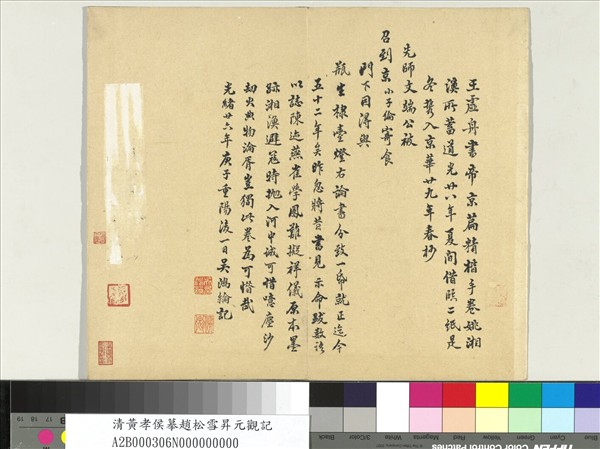 王虛舟書帝京篇精楷手卷姚湘
漢所蓄道光廿八年夏間借臨二紙足
冬携入京華廿九年春抄
先師文端公被
召到京小子倫寄食
門下因得與
瓶生棣臺燈右論書分致一帋就正迄今
五十二年矣昨忽將昔書見示命跋數語
以誌陳迹燕雀學鳳難擬祥儀原本墨
跡湘漁避寇時拋入河中誠可惜噫塵沙
劫火典物淪胥豈獨此卷為可惜哉
光緒廿六年庚子重陽後一日吳鴻綸記
清黃孝侯摹趙松雪昇元觀記
A2B000306N000000000
Black
3/Color
White
Magenta